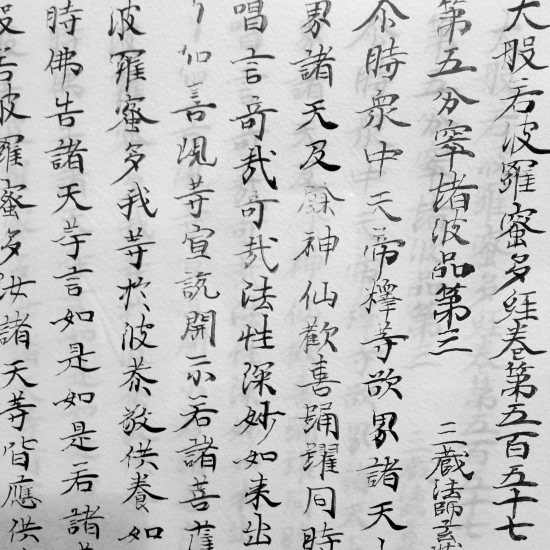 大般若波羅蜜多経卷第五百五十七
第五分窣堵波品第三
三蔵法師玄
尒時衆中天帝釋等欲界諸天
界諸天及餘神仙歡喜踊躍同時
唱言奇哉奇哉法性深妙如来出
如善現等宣説開示若諸菩薩
波羅蜜多我等於彼恭敬供養如
時佛告諸天等言如是如是若諸
般若波羅蜜多汝諸天等皆應供